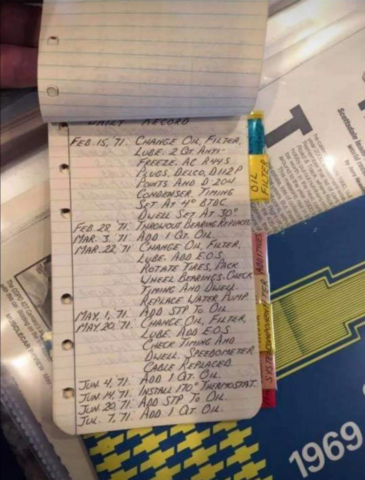 DAILY RECORD
FEB. 15, '71. CHANGE OIL, FILTER,
LUBE. 2 QT. ANTI-
FREEZE. AC R44S
PLUGS, DELCO, D112P
POINTS AND D-204
CONDENSER, TIMING
SET AT 4° BTDC
DWELL SET AT 30°
FEB. 28, '71. THROWOUT BEARING REPLACED
MAR. 3, '71. ADD 1 QT. OIL.
MAR. 22, '71 CHANGE OIL, FILTER,
LUBE. ADD E.O.S.
ROTATE TIRES, PACK
WHEEL BEARINGS. CHECK
TIMING AND DWELL.
REPLACE WATER PUMP.
MAY, 1, '71. ADD STP TO OIL
MAY. 20, '71. CHANGE OIL, FILTER,
LUBE. ADD E.O.S
CHECK TIMING AND
DWELL. SPEEDOMETER
CABLE REPLACED.
JUN. 4, '71. ADD 1 QT. OIL
JUN. 14, '71. INSTALL 170° THERMOSTAT.
JUN. 20, '71. ADD STP TO OIL
JUL. 7, '71. ADD 1 QT. OIL.
OIL
FILTER
ADDITIVES
SYSTEM
1969